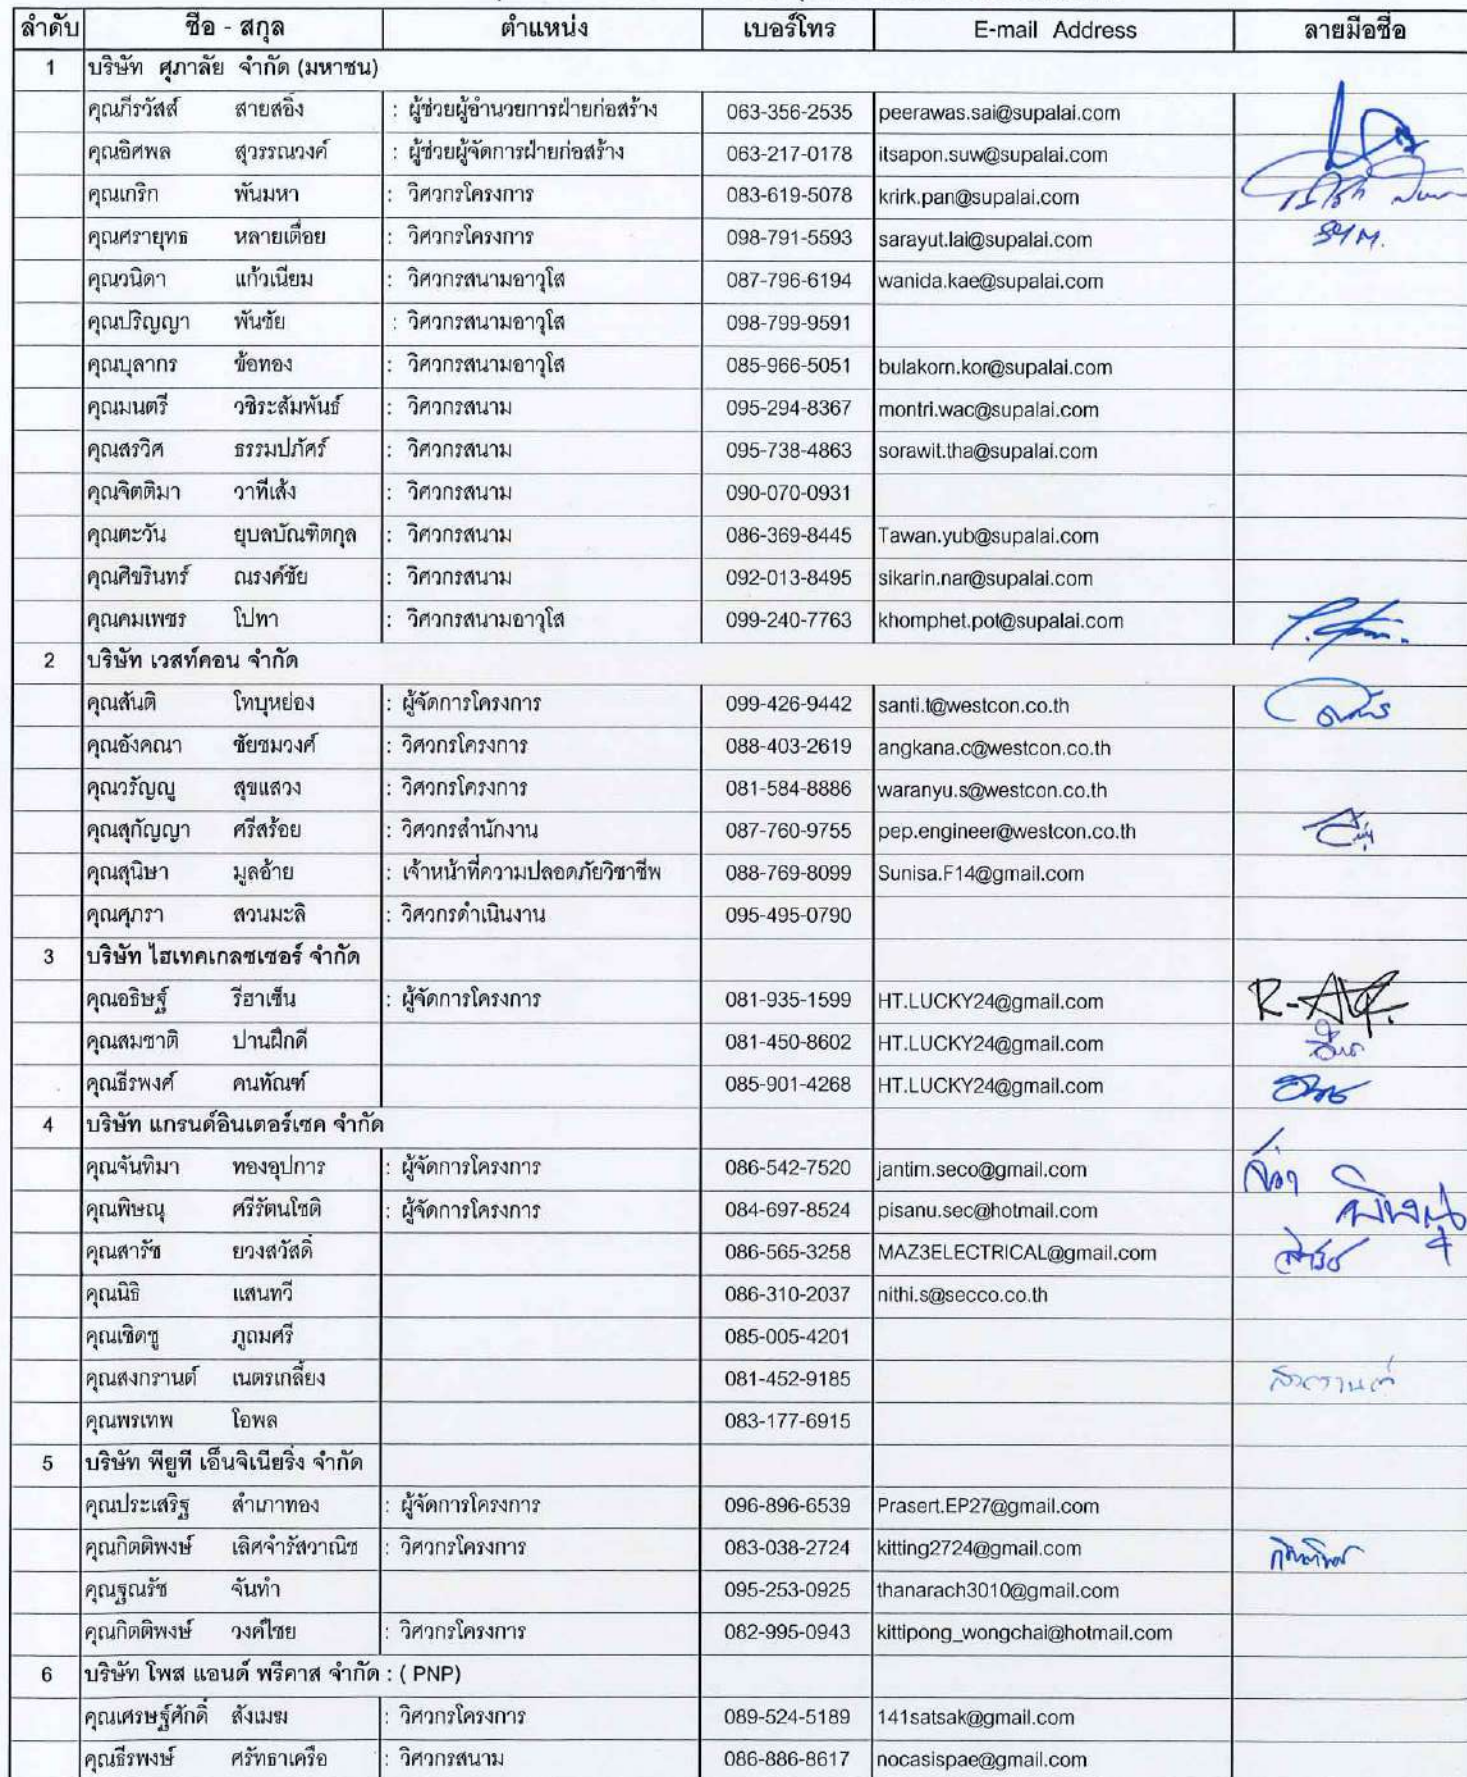 ลำดับ ชื่อ - สกุล ตำแหน่ง เบอร์โทร E-mail Address ลายมือชื่อ
1 บริษัท ศุภาลัย จำกัด (มหาชน)
คุณภีรวัสส์ สายสอิ้ง : ผู้ช่วยผู้อำนวยการฝ่ายก่อสร้าง 063-356-2535 peerawas.sai@supalai.com
คุณอิศพล สุวรรณวงค์ : ผู้ช่วยผู้จัดการฝ่ายก่อสร้าง 063-217-0178 itsapon.suw@supalai.com
คุณเกริก พันมหา : วิศวกรโครงการ 083-619-5078 krirk.pan@supalai.com
คุณศรายุทธ หลายเตื่อย : วิศวกรโครงการ 098-791-5593 sarayut.lai@supalai.com
คุณวนิดา แก้วเนียม : วิศวกรสนามอาวุโส 087-796-6194 wanida.kae@supalai.com
คุณปริญญา พันชัย : วิศวกรสนามอาวุโส 098-799-9591
คุณบุลากร ข้อทอง : วิศวกรสนามอาวุโส 085-966-5051 bulakorn.kor@supalai.com
คุณมนตรี วชิระสัมพันธ์ : วิศวกรสนาม 095-294-8367 montri.wac@supalai.com
คุณสรวิศ ธรรมปภัศร์ : วิศวกรสนาม 095-738-4863 sorawit.tha@supalai.com
คุณจิตติมา วาทีเส้ง : วิศวกรสนาม 090-070-0931
คุณตะวัน ยุบลบัณฑิตกุล : วิศวกรสนาม 086-369-8445 Tawan.yub@supalai.com
คุณศิขรินทร์ ณรงค์ชัย : วิศวกรสนาม 092-013-8495 sikarin.nar@supalai.com
คุณคมเพชร โปทา : วิศวกรสนามอาวุโส 099-240-7763 khomphet.pot@supalai.com
2 บริษัท เวสท์คอน จำกัด
คุณสันติ โทบุหย่อง : ผู้จัดการโครงการ 099-426-9442 santi.t@westcon.co.th
คุณอังคณา ชัยชมวงศ์ : วิศวกรโครงการ 088-403-2619 angkana.c@westcon.co.th
คุณวรัญญู สุขแสวง : วิศวกรโครงการ 081-584-8886 waranyu.s@westcon.co.th
คุณสุกัญญา ศรีสร้อย : วิศวกรสำนักงาน 087-760-9755 pep.engineer@westcon.co.th
คุณสุนิษา มูลอ้าย : เจ้าหน้าที่ความปลอดภัยวิชาชีพ 088-769-8099 Sunisa.F14@gmail.com
คุณศุภรา สวนมะลิ : วิศวกรดำเนินงาน 095-495-0790
3 บริษัท ไฮเทคเกลซเซอร์ จำกัด
คุณอธิษฐ์ รีฮาเซ็น : ผู้จัดการโครงการ 081-935-1599 HT.LUCKY24@gmail.com
คุณสมชาติ ปานฝึกดี 081-450-8602 HT.LUCKY24@gmail.com
คุณธีรพงศ์ คนทัณฑ์ 085-901-4268 HT.LUCKY24@gmail.com
4 บริษัท แกรนด์อินเตอร์เซค จำกัด
คุณจันทิมา ทองอุปการ : ผู้จัดการโครงการ 086-542-7520 jantim.seco@gmail.com
คุณพิษณุ ศรีรัตนโชติ : ผู้จัดการโครงการ 084-697-8524 pisanu.sec@hotmail.com
คุณสารัช ยวงสวัสดิ์ 086-565-3258 MAZ3ELECTRICAL@gmail.com
คุณนิธิ แสนทวี 086-310-2037 nithi.s@secco.co.th
คุณเชิดชู ภูถมศรี 085-005-4201
คุณสงกรานต์ เนตรเกลี้ยง 081-452-9185 สงกรานต์
คุณพรเทพ โอพล 083-177-6915
5 บริษัท พียูที เอ็นจิเนียริ่ง จำกัด
คุณประเสริฐ สำเภาทอง : ผู้จัดการโครงการ 096-896-6539 Prasert.EP27@gmail.com
คุณกิตติพงษ์ เลิศจำรัสวาณิช : วิศวกรโครงการ 083-038-2724 kitting2724@gmail.com
คุณฐณรัช จันทำ 095-253-0925 thanarach3010@gmail.com
คุณกิตติพงษ์ วงค์ไชย : วิศวกรโครงการ 082-995-0943 kittipong_wongchai@hotmail.com
6 บริษัท โพส แอนด์ พรีคาส จำกัด : ( PNP)
คุณเศรษฐ์ศักดิ์ สังเมฆ : วิศวกรโครงการ 089-524-5189 141satsak@gmail.com
คุณธีรพงษ์ ศรัทธาเครือ : วิศวกรสนาม 086-886-8617 nocasispae@gmail.com